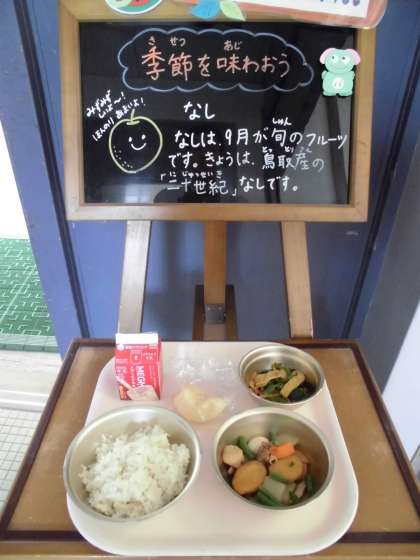 季節を味わおう
きせつ あじ
みずみず
しいよ〜!
ほんのり あまいよ!
なし
なしは、9月が旬のフルーツ
しゅん
です。きょうは、鳥取産の
とっとりさん
「二十世紀」なしです。
にじゅっせいき
MEGMILK